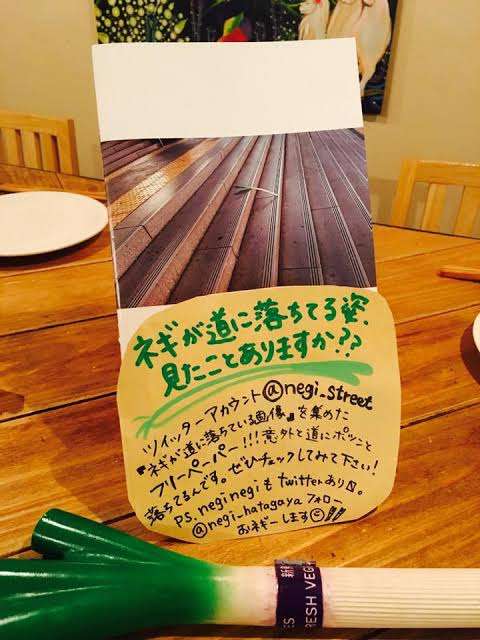 ネギが道に落ちてる姿、
見たことありますか??
ツイッターアカウント@negi_street
『ネギが道に落ちている画像』を集めた
フリーペーパー!!!意外と道にポツンと
落ちてるんです。ぜひチェックしてみて下さい!
PS. neginegiもtwitterあり〼。
@negi_hatagaya フォロー
おネギーします☺!!!
RESH VEG